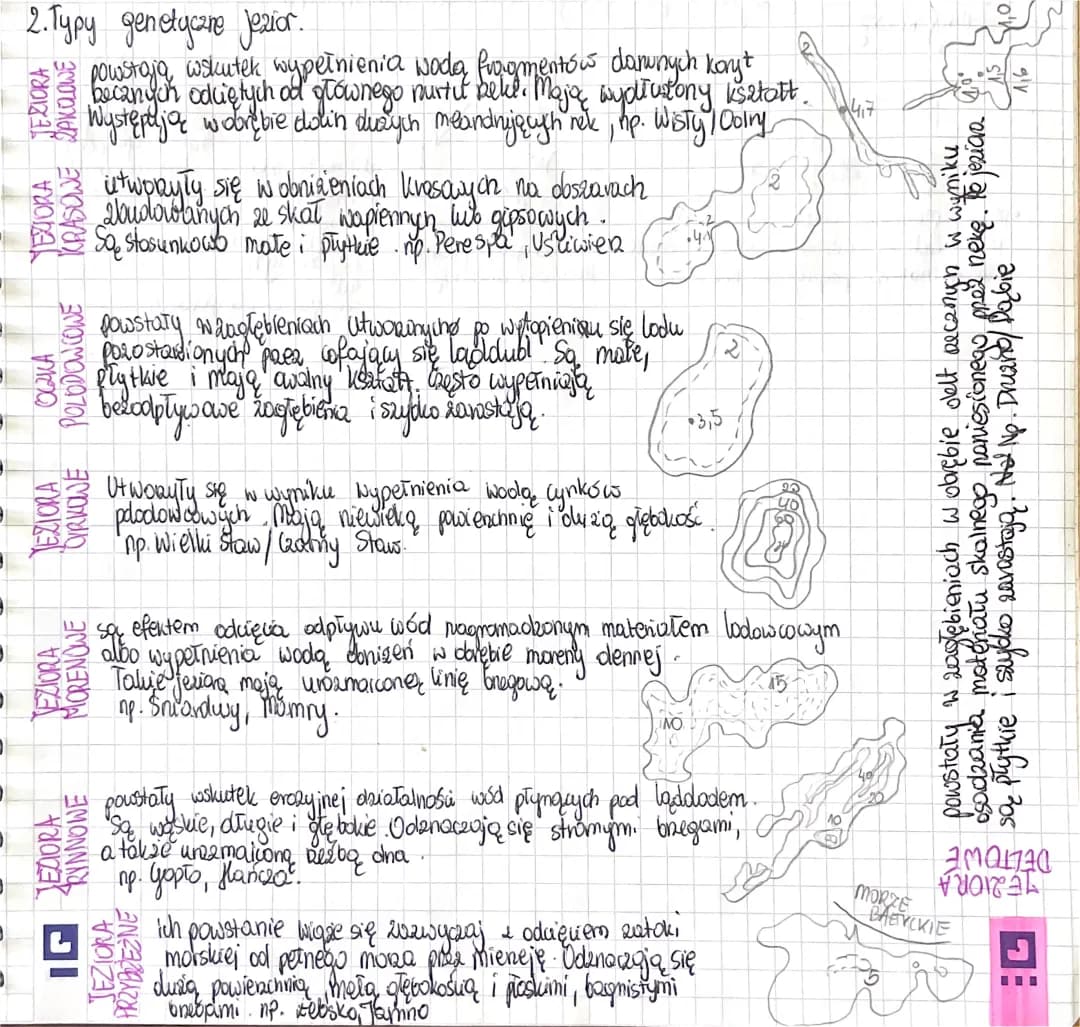 2. Typy genetyczne jezior.
JEZIORA ZAKOLOWE
powstają wskutek wypełnienia wodą fragmentów dawnych koryt
rzecznych odciętych od głównego nurtu rzeki. Mają wydłużony kształt.
Występują w obrębie dolin dużych meandrujących rzek, np. Wisły / Odry
2
4,7
JEZIORA KRASOWE
utworzyły się w obniżeniach krasowych na obszarach
zbudowanych ze skał wapiennych lub gipsowych.
Są stosunkowo małe i płytkie. np. Perespa, Uściwierz
2
2
4,1
OCZKA POLODOWCOWE
powstały w zagłębieniach utworzonych po wytopieniu się lodu
pozostawionych przez cofający się lądolód. Są małe,
płytkie i mają owalny kształt. Często wypełniają
bezodpływowe zagłębienia i szybko zarastają.
2
3,5
JEZIORA CYRKOWE
Utworzyły się w wyniku wypełnienia wodą cyrków
polodowcowych. Mają niewielką powierzchnię i dużą głębokość.
np. Wielki Staw / Czarny Staw.
20
40
60
JEZIORA MORENOWE
są efektem odcięcia odpływu wód nagromadzonym materiałem lodowcowym
albo wypełnienia wodą obniżeń w obrębie moreny dennej.
Takie jeziora mają urozmaiconą linię brzegową.
np. Śniardwy, Mamry.
15
10
JEZIORA RYNNOWE
powstały wskutek erozyjnej działalności wód płynących pod lądolodem.
Są wąskie, długie i głębokie. Odznaczają się stromymi brzegami,
a także urozmaiconą rzeźbą dna.
np. Gopło, Hańcza.
40
20
10
JEZIORA PRZYBRZEŻNE
ich powstanie wiąże się zazwyczaj z odcięciem zatoki
morskiej od pełnego morza przez mierzeję. Odznaczają się
dużą powierzchnią, małą głębokością i płaskimi, bagnistymi
brzegami. np. Łebsko, Jamno
MORZE
BAŁTYCKIE
5
JEZIORA DELTOWE
powstały w zagłębieniach w obrębie delt rzecznych w wyniku
osadzania materiału skalnego naniesionego przez rzekę. Te jeziora
są płytkie i szybko zarastają. Np. Druzno / Dąbie
1,0
1,5
1,6
1,0